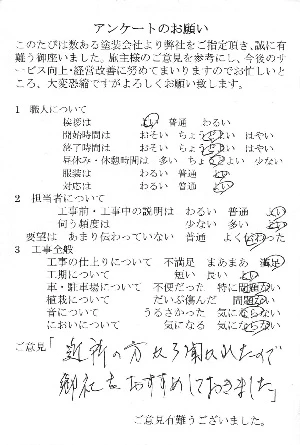 アンケートのお願い
このたびは数ある塗装会社より弊社をご指定頂き、誠に有
難う御座いました。施主様のご意見を参考にし、今後のサ
ービス向上・経営改善に努めてまいりますのでお忙しいと
ころ、大変恐縮ですがよろしくお願い致します。
1 職人について
挨拶は よい 普通 わるい
開始時間は おそい ちょうどよい はやい
終了時間は おそい ちょうどよい はやい
昼休み・休憩時間は 多い ちょうどよい 少ない
服装は わるい 普通 よい
対応は わるい 普通 よい
2 担当者について
工事前・工事中の説明は わるい 普通 よい
伺う頻度は 少ない 多い よい
要望は あまり伝わっていない 普通 よく伝わった
3 工事全般
工事の仕上りについて 不満足 まあまあ 満足
工期について 短い 長い よい
車・駐車場について 不便だった 特に問題ない
植栽について だいぶ傷んだ 問題ない
音について うるさかった 気にならない
においについて 気になる 気にならない
ご意見「近所の方にも聞かれたので
御社をおすすめしておきました」
ご意見有難うございました。